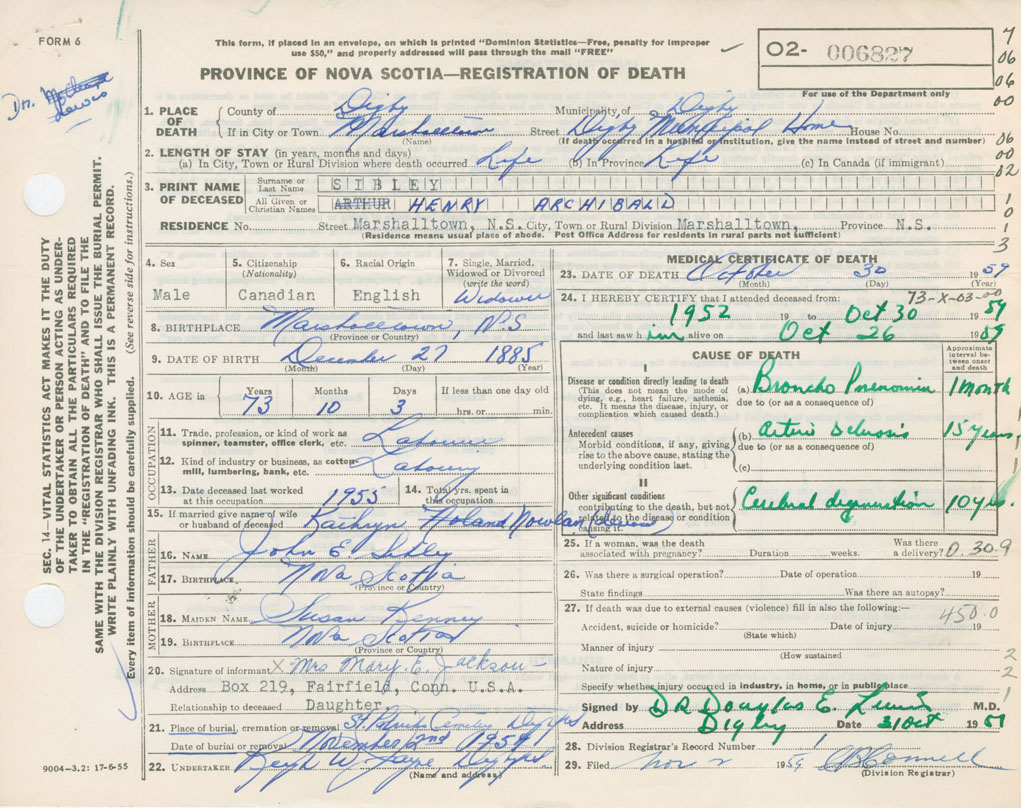 FORM 6
This form, if placed in an envelope, on which is printed "Dominion Statistics—Free, penalty for improper
use $50," and properly addressed will pass through the mail "FREE"
PROVINCE OF NOVA SCOTIA—REGISTRATION OF DEATH
O2- 006827
For use of the Department only
7
06
06
00
06
00
02
1
0
1
3
Dr.
Lewis
SEC. 14—VITAL STATISTICS ACT MAKES IT THE DUTY
OF THE UNDERTAKER OR PERSON ACTING AS UNDER-
TAKER TO OBTAIN ALL THE PARTICULARS REQUIRED
IN THE "REGISTRATION OF DEATH" AND TO FILE THE
SAME WITH THE DIVISION REGISTRAR WHO SHALL ISSUE THE BURIAL PERMIT.
WRITE PLAINLY WITH UNFADING INK. THIS IS A PERMANENT RECORD.
Every item of information should be carefully supplied. (See reverse side for instructions.)
1. PLACE OF DEATH
County of Digby Municipality of Digby
If in City or Town Marshalltown Street Digby Municipal Home House No.
(Name) (If death occurred in a hospital or institution, give the name instead of street and number)
2. LENGTH OF STAY (in years, months and days)
(a) In City, Town or Rural Division where death occurred Life (b) In Province Life (c) In Canada (if immigrant)
3. PRINT NAME OF DECEASED
Surname or Last Name SIBLEY
All Given or Christian Names ARTHUR HENRY ARCHIBALD
RESIDENCE No. Street Marshalltown, N.S. City, Town or Rural Division Marshalltown, Province N.S.
(Residence means usual place of abode. Post Office Address for residents in rural parts not sufficient)
4. Sex
Male
5. Citizenship (Nationality)
Canadian
6. Racial Origin
English
7. Single, Married, Widowed or Divorced (write the word)
Widower
8. BIRTHPLACE Marshalltown, N.S
(Province or Country)
9. DATE OF BIRTH December 27 1885
(Month) (Day) (Year)
10. AGE in Years 73 Months 10 Days 3 If less than one day old hrs. or min.
OCCUPATION
11. Trade, profession, or kind of work as
spinner, teamster, office clerk, etc. Labourer
12. Kind of industry or business, as cotton
mill, lumbering, bank, etc.
13. Date deceased last worked at this occupation 1955
14. Total yrs. spent in this occupation
15. If married give name of wife
or husband of deceased Kathryn Nowlan
FATHER
16. NAME John E Sibley
17. BIRTHPLACE Nova Scotia
(Province or Country)
MOTHER
18. MAIDEN NAME Susan Kenney
19. BIRTHPLACE Nova Scotia
(Province or Country)
20. Signature of informant X Mrs Mary. E. Jackson
Address Box 219, Fairfield, Conn. U.S.A.
Relationship to deceased Daughter.
21. Place of burial, cremation or removal St. Patricks Cemetery Digby
Date of burial or removal November 2nd 1959
22. UNDERTAKER W. Digby
(Name and address)
9004—3.2: 17-6-55
MEDICAL CERTIFICATE OF DEATH
23. DATE OF DEATH October 30 1959
(Month) (Day) (Year)
73-X-03-00
24. I HEREBY CERTIFY that I attended deceased from:
1952 19 to Oct 30 1959
and last saw him alive on Oct 26 1959
CAUSE OF DEATH
Approximate interval between onset and death
I
Disease or condition directly leading to death
(This does not mean the mode of
dying, e.g., heart failure, asthenia,
etc. It means the disease, injury, or
complication which caused death.)
(a) Broncho Pneumonia 1 month
due to (or as a consequence of)
Antecedent causes
Morbid conditions, if any, giving
rise to the above cause, stating the
underlying condition last.
(b) Arterio Sclerosis 15 years
due to (or as a consequence of)
(c)
II
Other significant conditions
contributing to the death, but not
related to the disease or condition
causing it.
Cerebral degeneration 10 yrs.
25. If a woman, was the death
associated with pregnancy? Duration weeks. Was there a delivery?
0.309
26. Was there a surgical operation? Date of operation 19
State findings Was there an autopsy?
27. If death was due to external causes (violence) fill in also the following:—
450.0
Accident, suicide or homicide? Date of injury 19
(State which)
Manner of injury
(How sustained
2
Nature of injury
2
Specify whether injury occurred in industry, in home, or in public place
1
Signed by DR Douglas E. Lewis M.D.
Address Digby Date 31 Oct 1959
28. Division Registrar's Record Number
29. Filed Nov 2 1959
(Division Registrar)